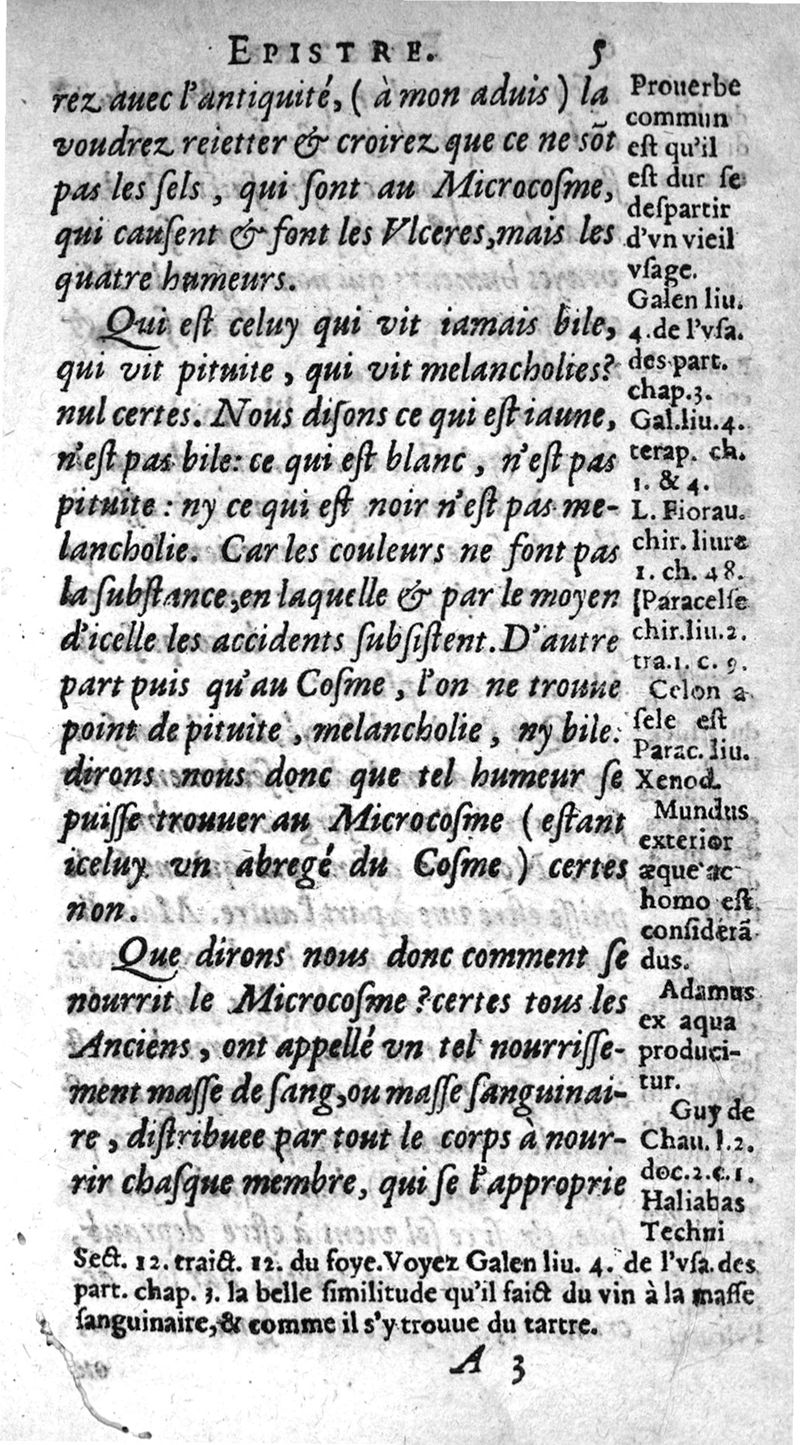 EPISTRE. 5
rez auec l'antiquité, ( à mon aduis ) la
voudrez reietter & croirez que ce ne sõt
pas les ſels , qui ſont au Microcoſme,
qui cauſent & font les Vlceres, mais les
quatre humeurs.
Qui eſt celuy qui vit iamais bile,
qui vit pituite , qui vit melancholies?
nul certes. Nous diſons ce qui eſt iaune,
n'eſt pas bile: ce qui eſt blanc , n'eſt pas
pituite : ny ce qui eſt noir n'eſt pas me-
lancholie. Car les couleurs ne font pas
la ſubſtance, en laquelle & par le moyen
d'icelle les accidents ſubſiſtent. D'autre
part puis qu'au Coſme , l'on ne trouue
point de pituite , melancholie , ny bile:
dirons nous donc que tel humeur ſe
puiſſe trouuer au Microcoſme ( eſtant
iceluy vn abregé du Coſme ) certes
non.
Que dirons nous donc comment ſe
nourrit le Microcoſme ? certes tous les
Anciens , ont appellé vn tel nourriſſe-
ment maſſe de ſang, ou maſſe ſanguinai-
re , diſtribuee par tout le corps à nour-
rir chaſque membre, qui ſe l'approprie
Prouerbe
commun
eſt qu'il
eſt dur ſe
deſpartir
d'vn vieil
vſage.
Galen liu.
4. de l'vſa.
des part.
chap. 3.
Gal. liu. 4.
terap. ch.
1. & 4.
L. Fiorau.
chir. liure
1. ch. 48.
[Paracelſe
chir. liu. 2.
tra. 1. c. 9.
Celon a
ſele eſt
Parac. liu.
Xenod.
Mundus
exterior
æque ac
homo eſt
conſiderã
dus.
Adamus
ex aqua
produci-
tur.
Guy de
Chau. l. 2.
doc. 2. c. 1.
Haliabas
Techni
Sect. 12. traict. 12. du foye. Voyez Galen liu. 4. de l'vſa. des
part. chap. 3. la belle ſimilitude qu'il faict du vin à la maſſe
ſanguinaire, & comme il s'y trouue du tartre.
A 3